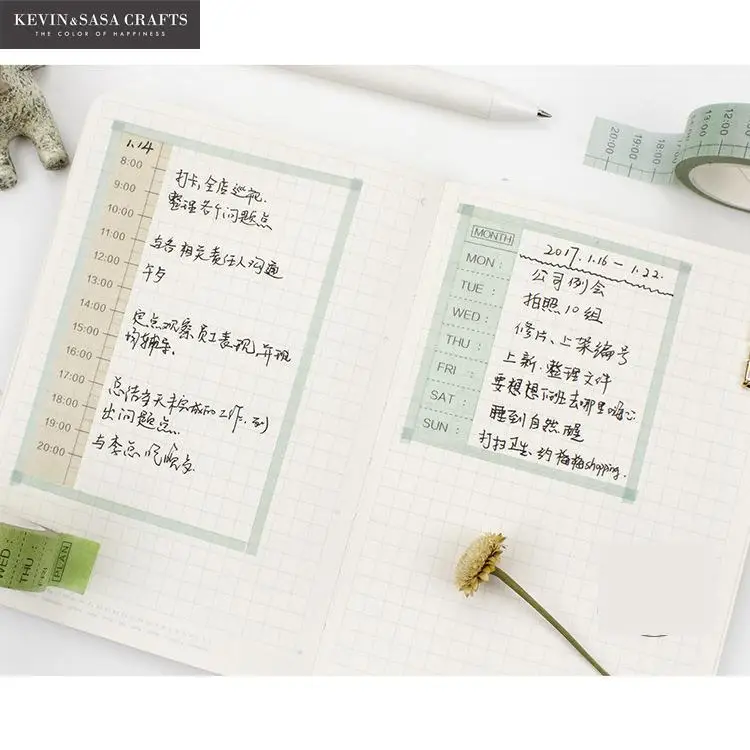 KEVIN&SASA CRAFTS
THE COLOR OF HAPPINESS
1.14
8:00
9:00
10:00
11:00
12:00
13:00
14:00
15:00
16:00
17:00
18:00
19:00
20:00
打卡,全店巡视.
整理各个问题点
与各相关责任人沟通
午歺
定点观察员工表现,并现
场辅导.
总结当天未完成的工作,列
出问题点.
与李总吃晚歺.
MONTH
MON:
TUE:
WED:
THU:
FRI:
SAT:
SUN:
2017.1.16-1.22.
公司例会
拍照10组
修片、上架编号
上新.整理文件
要想想下班去哪里嗨心
睡到自然醒
打扫卫生、约梅梅shopping.
20:00
19:00
18:00
13:00
12:00
WED:
THU:
FRI
PLAN